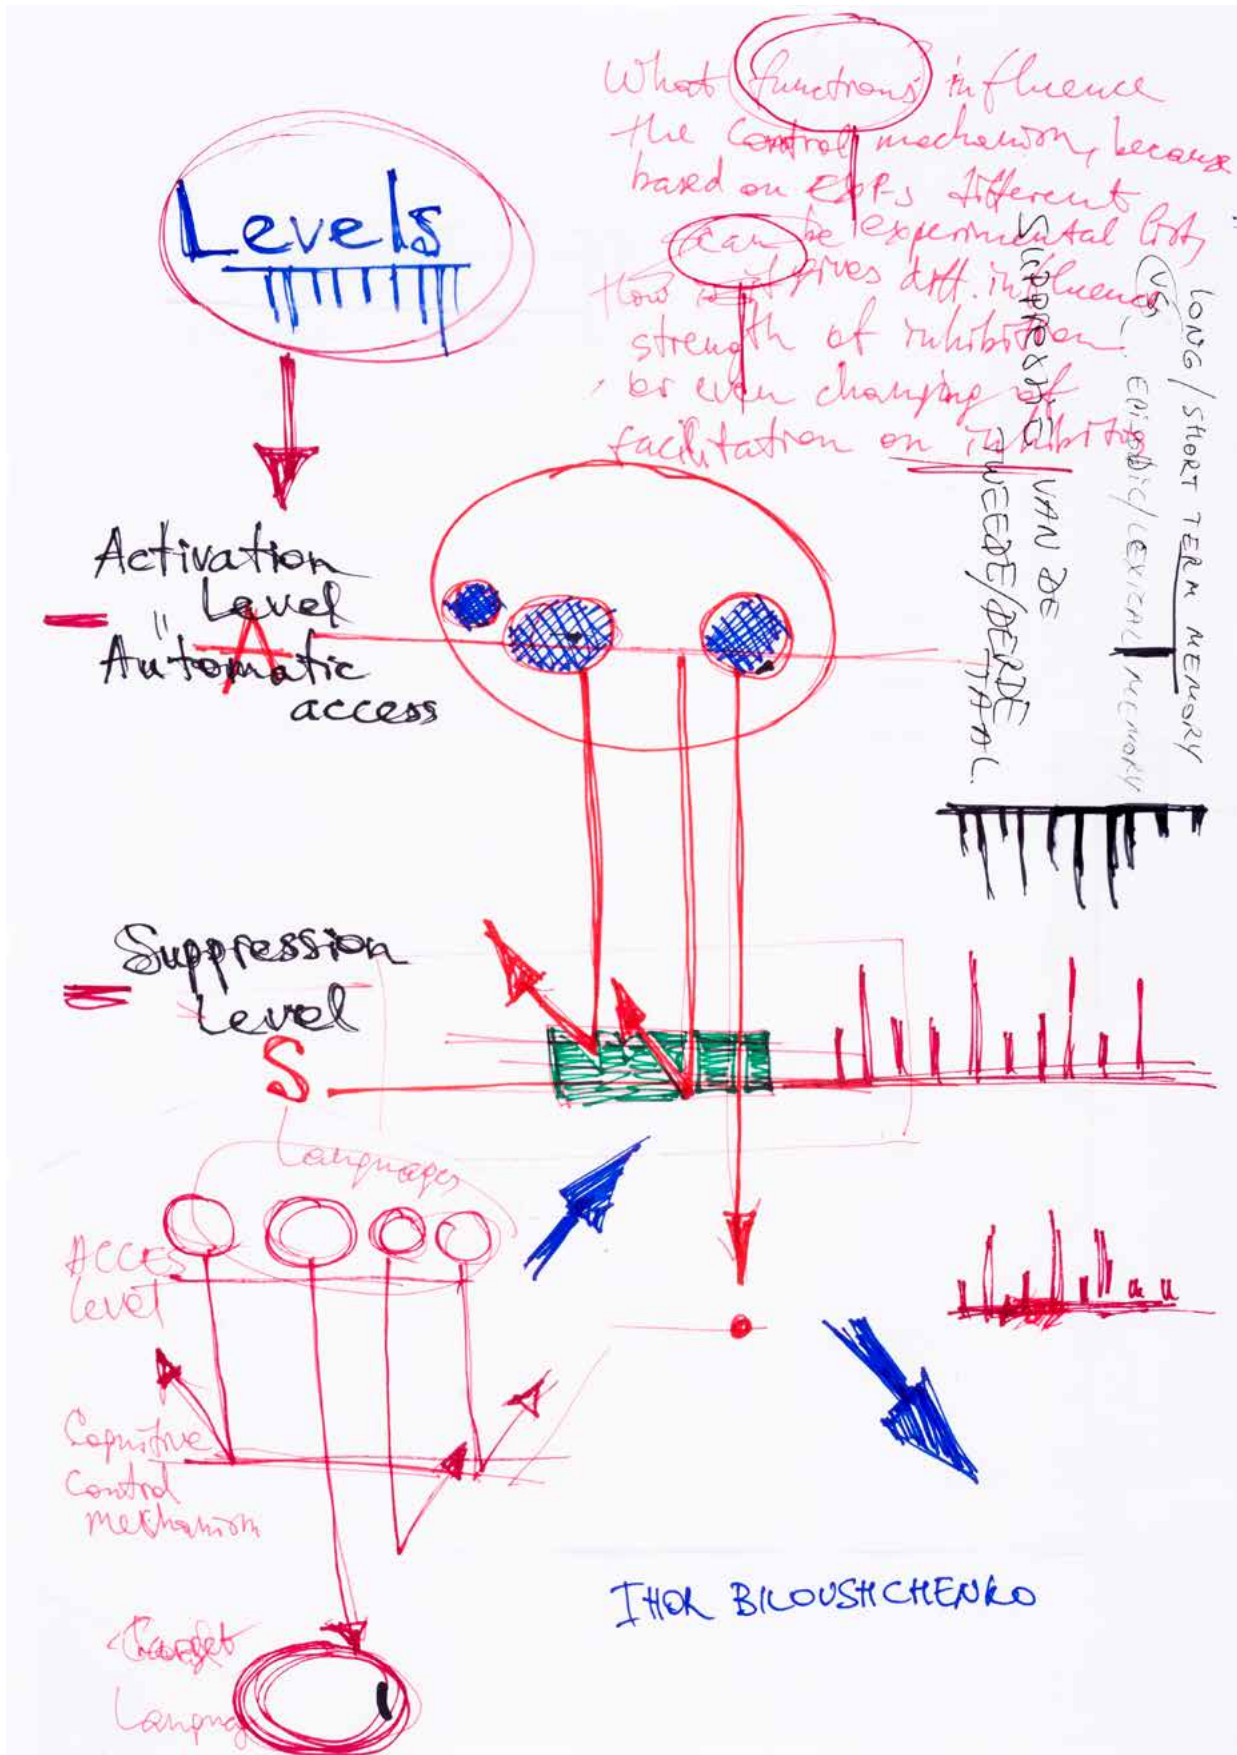 What functions influence
the control mechanism, because
based on ERPs different
can be experimental lists
How it gives diff. influence
strength of inhibition
or even changing of
facilitation on inhibition
Levels
LONG / SHORT TERM MEMORY
VS
EPISODIC/LEXICAL MEMORY
SUPPRESSIE VAN DE
TWEEDE/DERDE TAAL
Activation
Level
"
A
Automatic
access
Suppression
Level
S
Languages
ACCES
level
Cognitive
Control
mechanism
Target
Languag
IHOR BILOUSHCHENKO